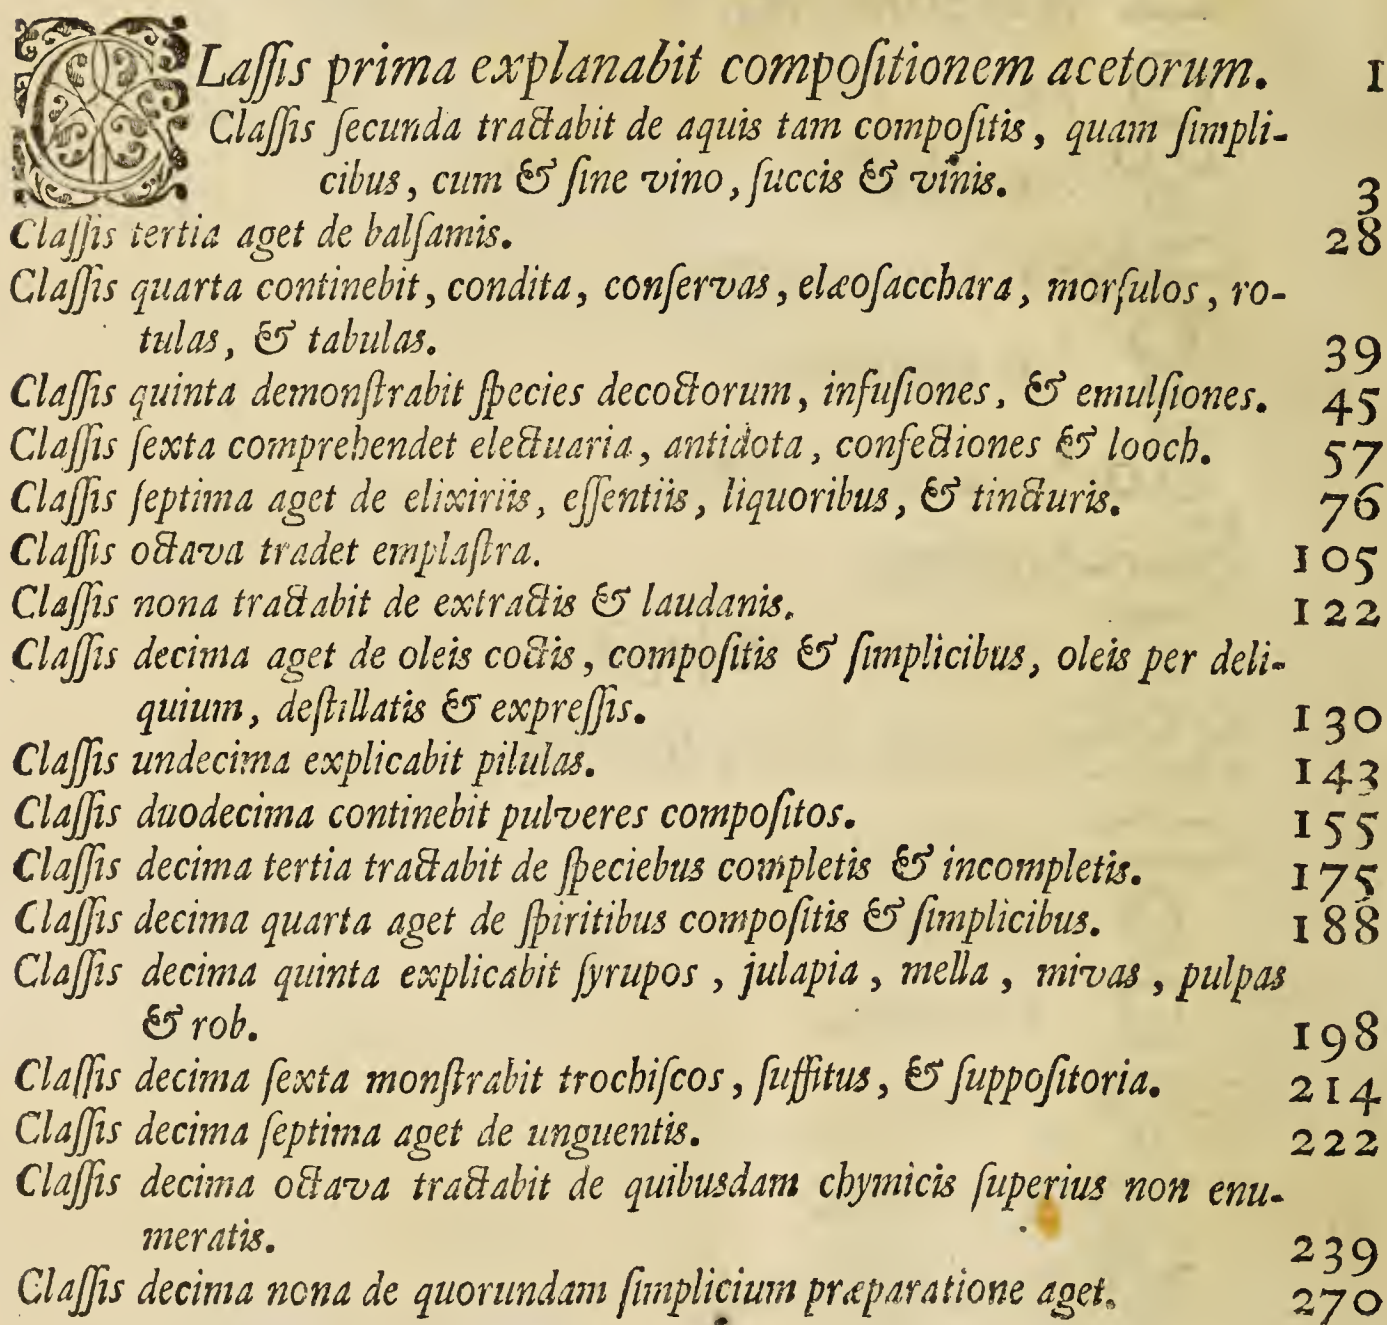 CLaſſis prima explanabit compoſitionem acetorum. 1
Claſſis ſecunda tractabit de aquis tam compoſitis, quam ſimpli-
cibus, cum & ſine vino, ſuccis & vinis. 3
Claſſis tertia aget de balſamis. 28
Claſſis quarta continebit, condita, conſervas, elæoſacchara, morſulos, ro-
tulas, & tabulas. 39
Claſſis quinta demonſtrabit ſpecies decoctorum, infuſiones, & emulſiones. 45
Claſſis ſexta comprehendet electuaria, antidota, confectiones & looch. 57
Claſſis ſeptima aget de elixiriis, eſſentiis, liquoribus, & tincturis. 76
Claſſis octava tradet emplaſtra. 105
Claſſis nona tractabit de extractis & laudanis. 122
Claſſis decima aget de oleis coctis, compoſitis & ſimplicibus, oleis per deli-
quium, deſtillatis & expreſſis. 130
Claſſis undecima explicabit pilulas. 143
Claſſis duodecima continebit pulveres compoſitos. 155
Claſſis decima tertia tractabit de ſpeciebus completis & incompletis. 175
Claſſis decima quarta aget de ſpiritibus compoſitis & ſimplicibus. 188
Claſſis decima quinta explicabit ſyrupos, julapia, mella, mivas, pulpas
& rob. 198
Claſſis decima ſexta monſtrabit trochiſcos, ſuffitus, & ſuppoſitoria. 214
Claſſis decima ſeptima aget de unguentis. 222
Claſſis decima octava tractabit de quibusdam chymicis ſuperius non enu-
meratis. 239
Claſſis decima nona de quorundam ſimplicium præparatione aget. 270